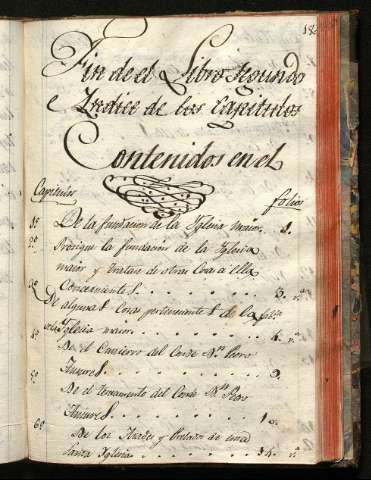 18
Fin de el Libro segundo
e Yndice de los Capitulos
Contenidos en el
Capitulos folios
1º De la fundacion de la Yglesia maior. 1.
2º Prosigue la fundacion de la Yglesia
maior y tratase de otras Cosas a Ella
Concernientes. 3. vª
3º De algunas Cosas pertenecientes de la
Yglesia maior. 4. vª
4º De el Cauiero del Conde Dn Pedro
Ansures. 9.
5º De el testamento del Conde Dn Pedro
Ansures. 1
6º De los Abades y Prelados de esta
Santa Yglesia. 14. vº